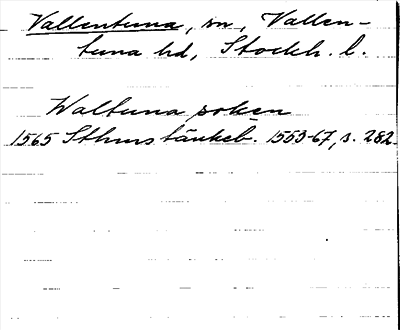 Vallentuna, sn, Vallen-
tuna hd, Stockh. l.
Waltuna soken
1565 Sthms tänkeb. 1553-67, s. 282.